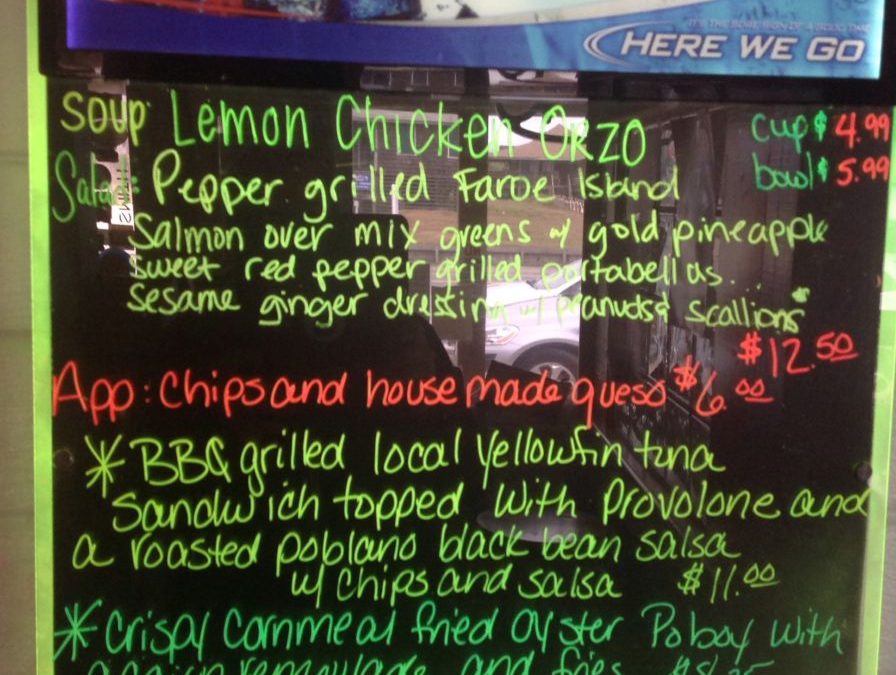 HERE WE GO
Soup Lemon Chicken Orzo cup $ 4.99
bowl $ 5.99
Salad: Pepper grilled Faroe Island
Salmon over mix greens w/ gold pineapple
sweet red pepper grilled portabellas...
sesame ginger dressing w/ peanuts & scallions
$12.50
App: Chips and house made queso $6.00
* BBQ grilled local yellowfin tuna
sandwich topped with Provolone and
a roasted poblano black bean salsa
w/ chips and salsa $11.00
* Crispy cornmeal fried oyster Poboy with
remoulade and fries